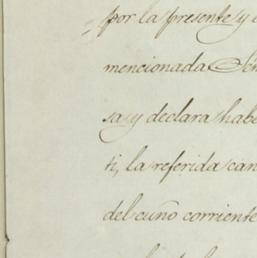 por la presente y
mencionada Señ
sa y declara habe
ti, la referida can
del cuño corriente